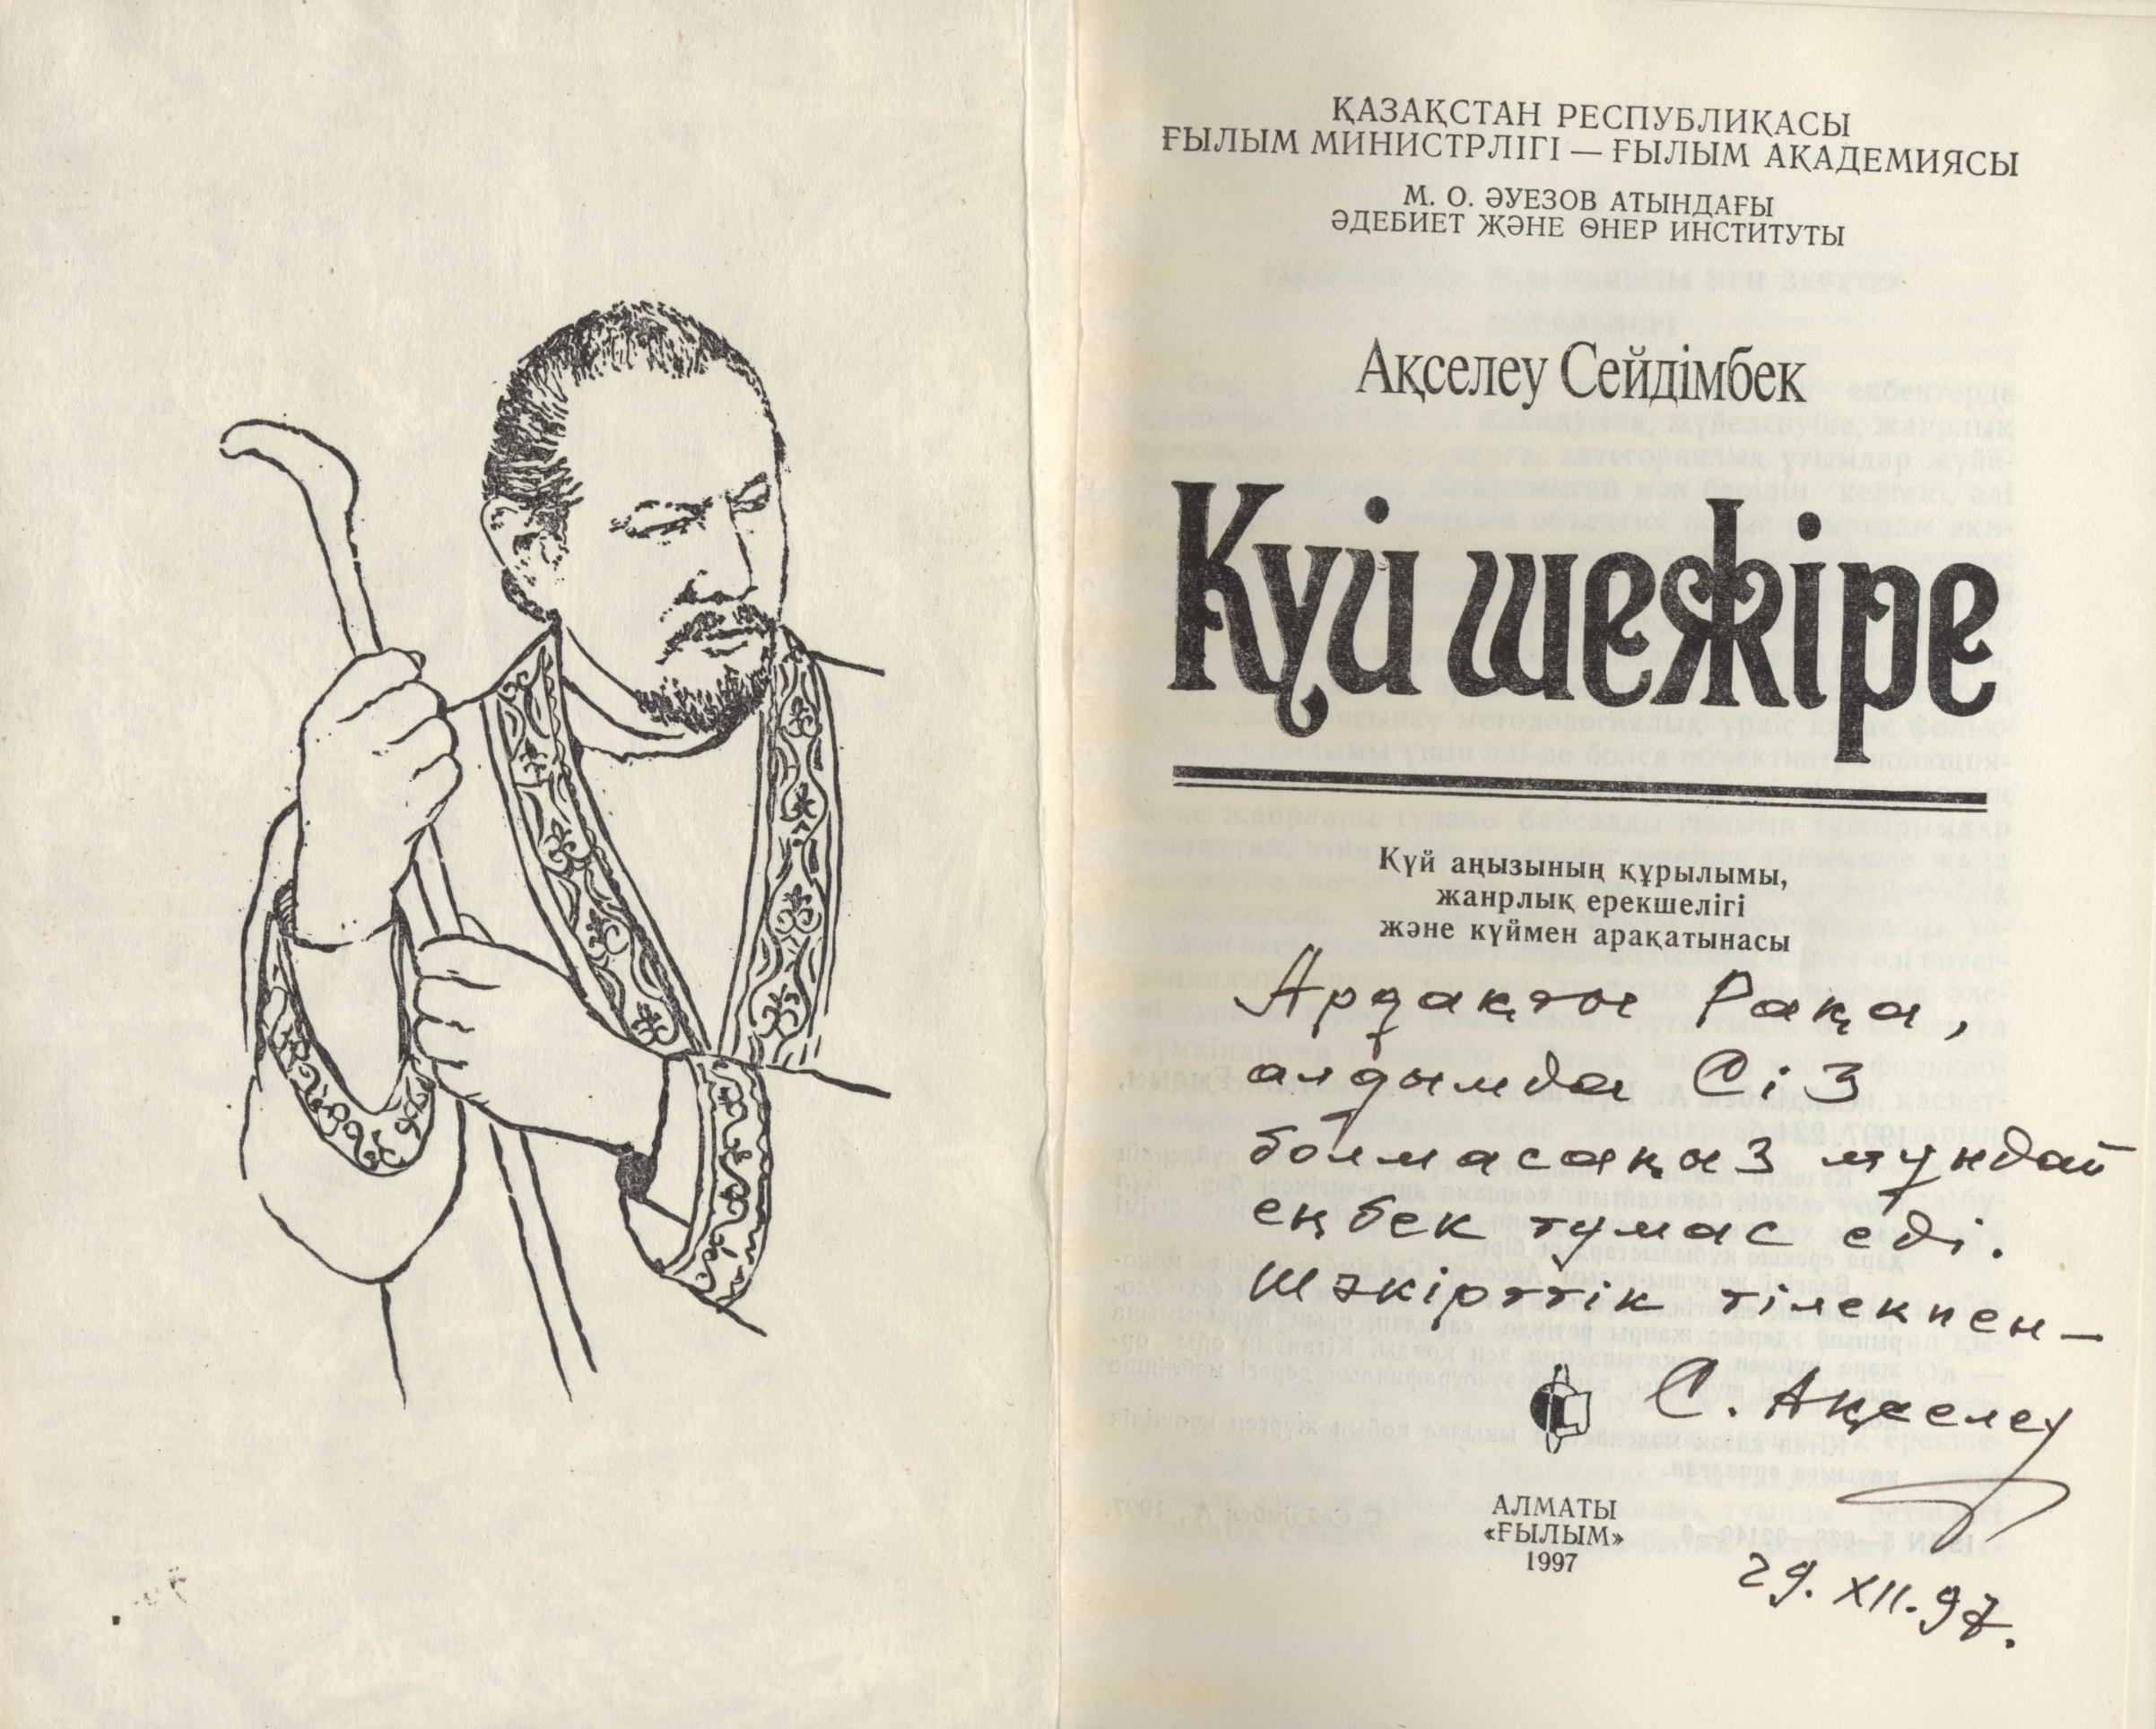 ҚАЗАҚСТАН РЕСПУБЛИКАСЫ
ҒЫЛЫМ МИНИСТРЛІГІ — ҒЫЛЫМ АКАДЕМИЯСЫ
М. О. ӘУЕЗОВ АТЫНДАҒЫ
ӘДЕБИЕТ ЖӘНЕ ӨНЕР ИНСТИТУТЫ
Ақселеу Сейдімбек
Күй шежіре
Күй аңызының құрылымы,
жанрлық ерекшелігі
және күймен арақатынасы
Ардақты Рақа,
алдымда Сіз
болмасаңыз мұндай
еңбек тумас еді.
Шәкірттік тілекпен —
С. Ақселеу
АЛМАТЫ
«ҒЫЛЫМ»
1997
29. XII. 97.